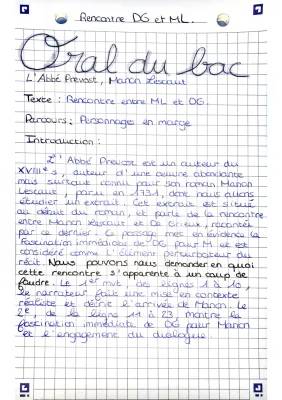 Rencontre DG et ML.
Oral du bac
L'Abbé Prévost, Manon Lescaut
Texte : Rencontre entre ML et DG.
Parcours : Personnage en marge
Introduction :
L'Abbé Prévost est un auteur du
XVIIIe s, auteur d'une oeuvre abondante
mais surtout connu pour son roman Manon
Lescaut, paru en 1731, dont nous allons
étudier un extrait. Cet extrait est situé
au début du roman, et parle de la rencontre
entre Manon Lescaut et Des Grieux, racontée
par ce dernier. Ce passage met en évidence la
fascination immédiate de DG pour M et est
considéré comme l'élément perturbateur du
récit. Nous pouvons nous demander en quoi
cette rencontre s'apparente à un coup de
foudre. Le 1er mvt, des lignes 1 à 10,
le narrateur fait une mise en contexte
réaliste et décrit l'arrivée de Manon. Le
2e, de la ligne 11 à 23, montre la
fascination immédiate de DG pour Manon
et l'engagement du dialogue